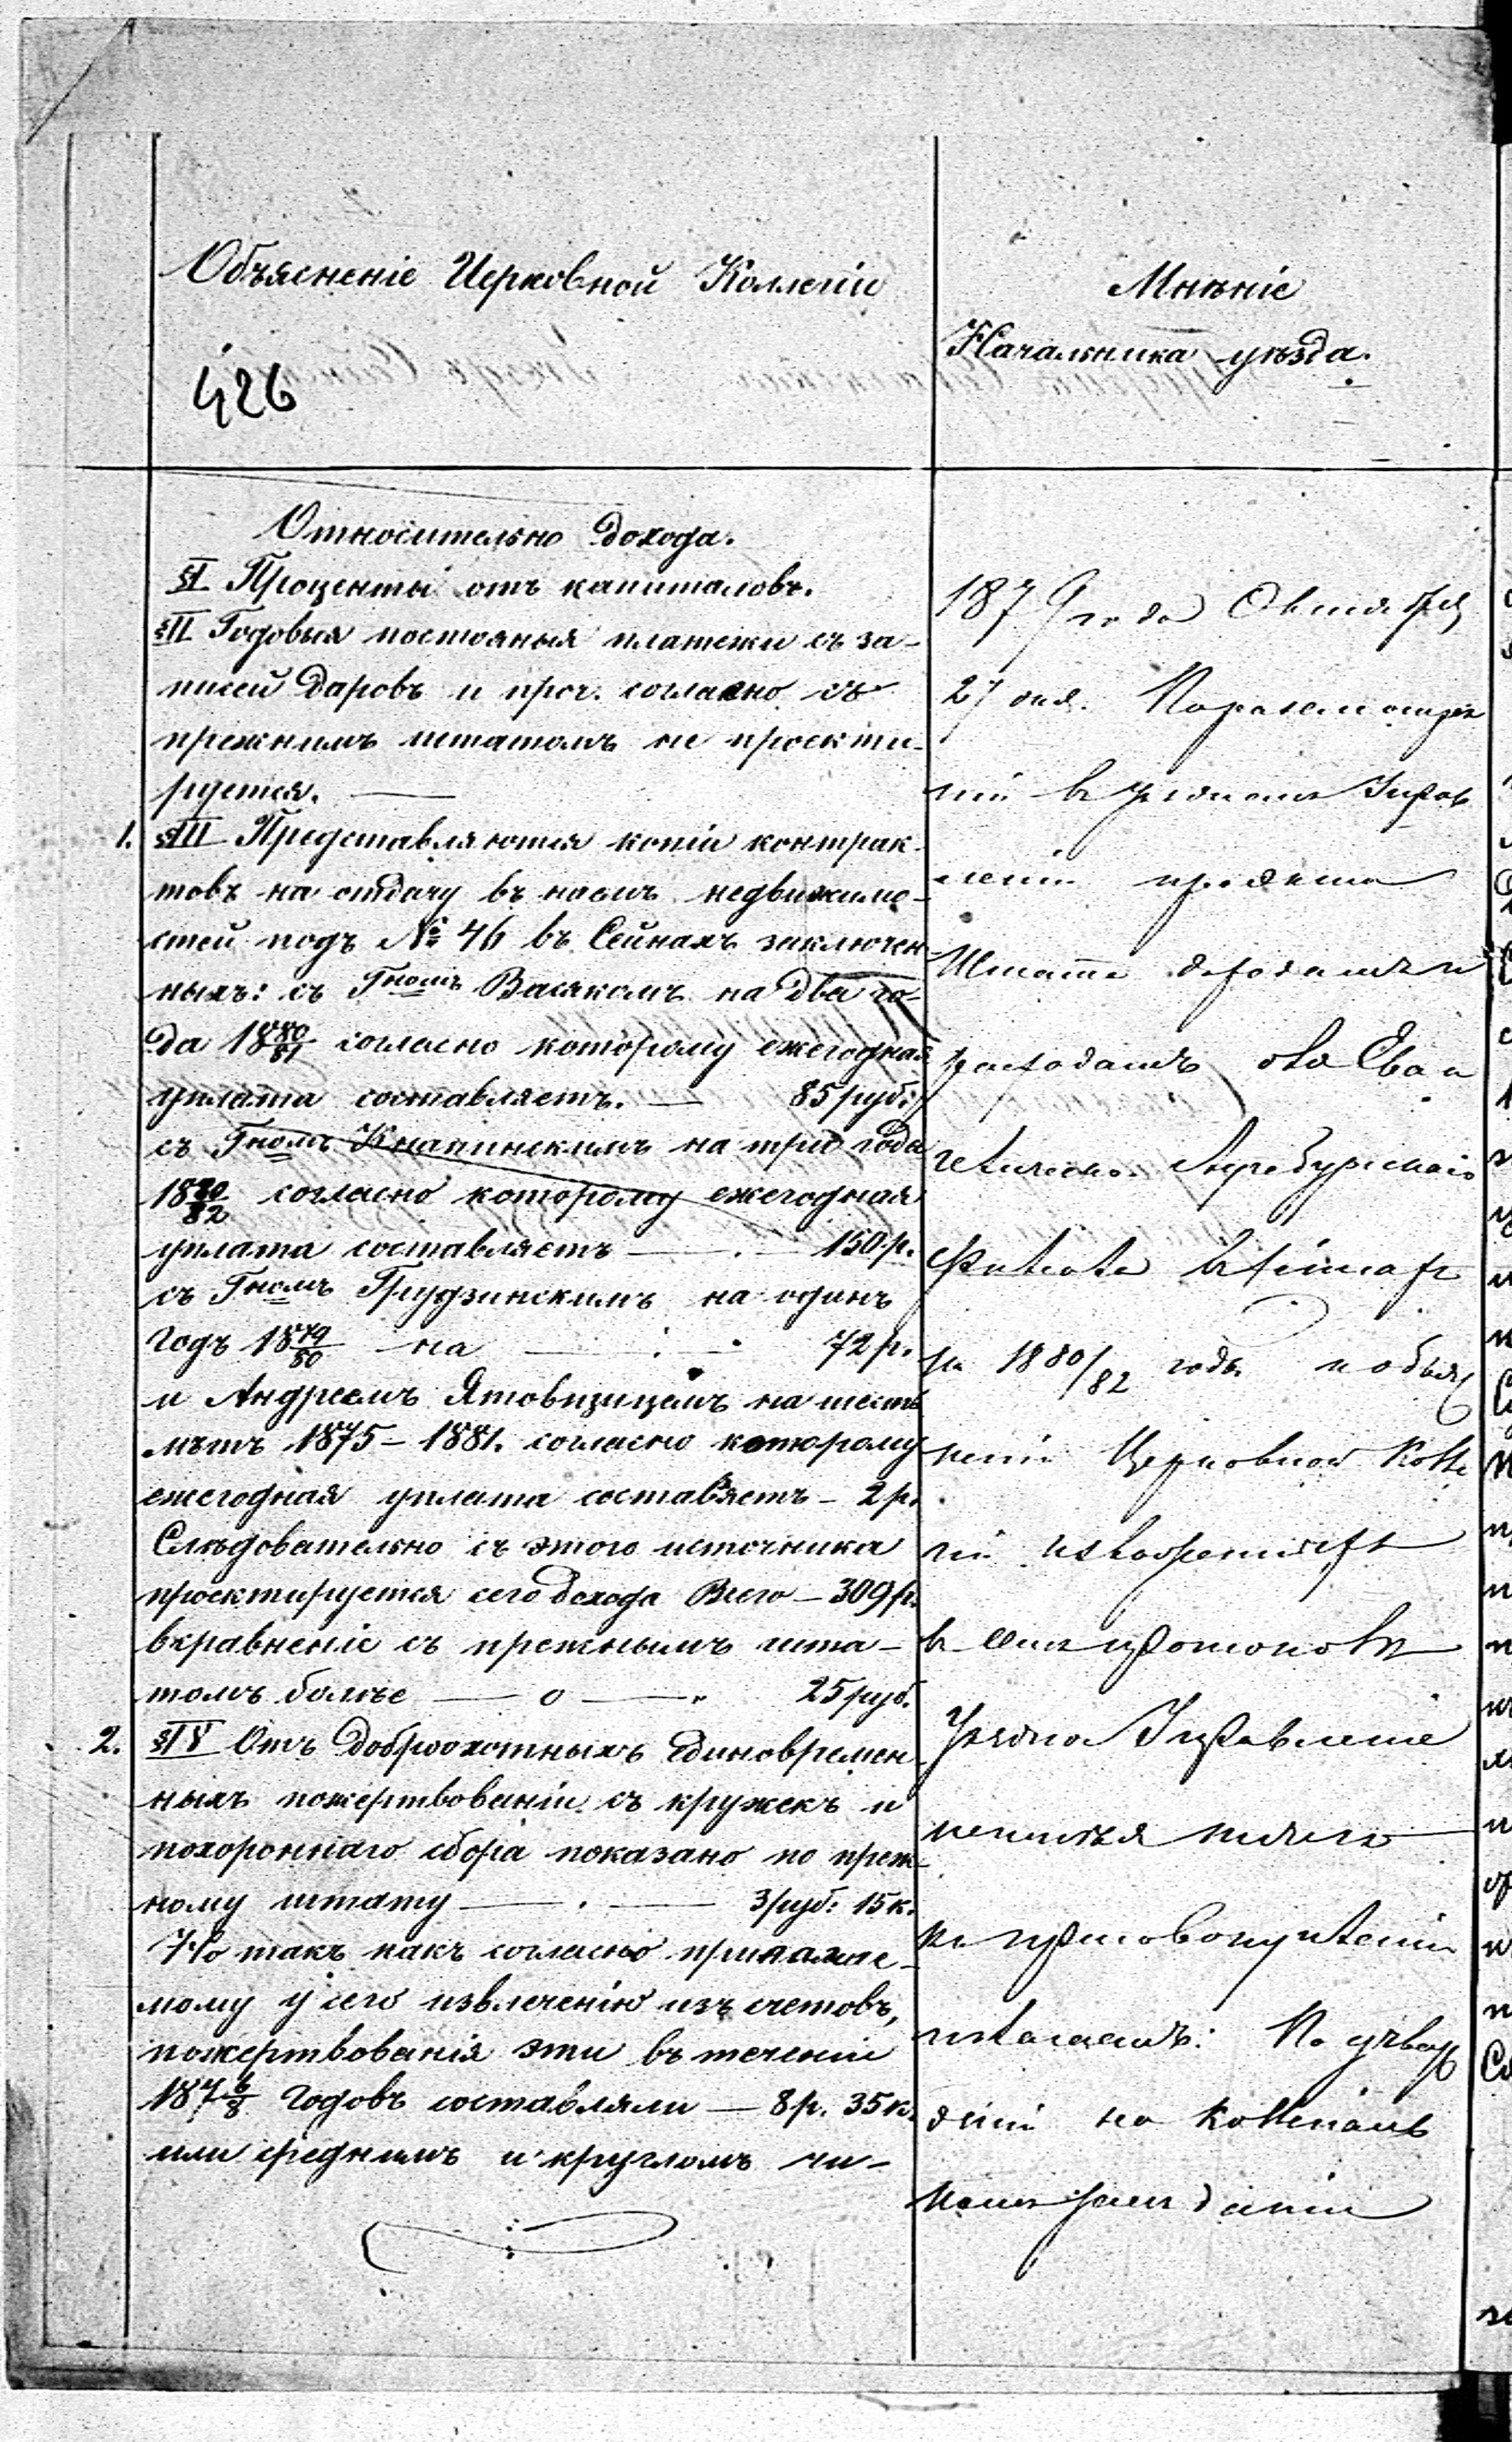 Объясненіе Церковной Коллегіи
426
Мнѣніе
Начальника уѣзда.
Относительно дохода.
§I Проценты отъ капиталовъ.
§II Годовыя постояныя платежи съ за-
писей даровъ и проч. согласно съ
прежнимъ штатомъ не проекти-
руется.
1. §III Представляются копіи контрак-
товъ на отдачу въ наемъ недвижимо-
стей подъ № 46 въ Сейнахъ заключен-
ныхъ: съ Гномъ Васякомъ на два го-
да 1880/81 согласно которому ежегодная
уплата составляетъ. — 85 руб:
съ Гномъ Кнапинскимъ на три года
1880/82 согласно которому ежегодная
уплата составляетъ — . — 150 р.
съ Гномъ Грудзинскимъ на одинъ
годъ 1879/80 на — . — 72 р.
и Андреемъ Ятовтцицемъ на шесть
лѣтъ 1875 – 1881. согласно которому
ежегодная уплата составляетъ – 2 р.
Слѣдовательно съ этого источника
проектируется сего дохода Всего – 309 р.
вкравненіе съ прежнымъ шта-
томъ болѣе — о — „ 25 руб.
2. §IV Отъ доброохотныхъ единовремен-
ныхъ пожертвованіи съ кружекъ и
похороннаго сбора показано по преж-
ному штату — . — 3 руб: 15 к.
Но такъ какъ согласно прилагае-
мому у сего извлеченію изъ счетовъ,
пожертвованія эти въ теченіи
1876/8 годовъ составляли — 8 р. 35 к.
или среднимъ и кругломъ чи-
1879 года Октября
27 дня. По разсмотре
ніи въ уѣздномъ Управ
леніи проекта
Штата доходамъ и
расходамъ для Еван
гелическо Аугсбургскаго
филіала въ Сейнахъ
на 1880/82 годы и объяс
неній Церковной Колле
гіи изложенныхъ
въ семъ протоколѣ
Уѣздное Управленіе
ни
полагаетъ: По утверж
деніи